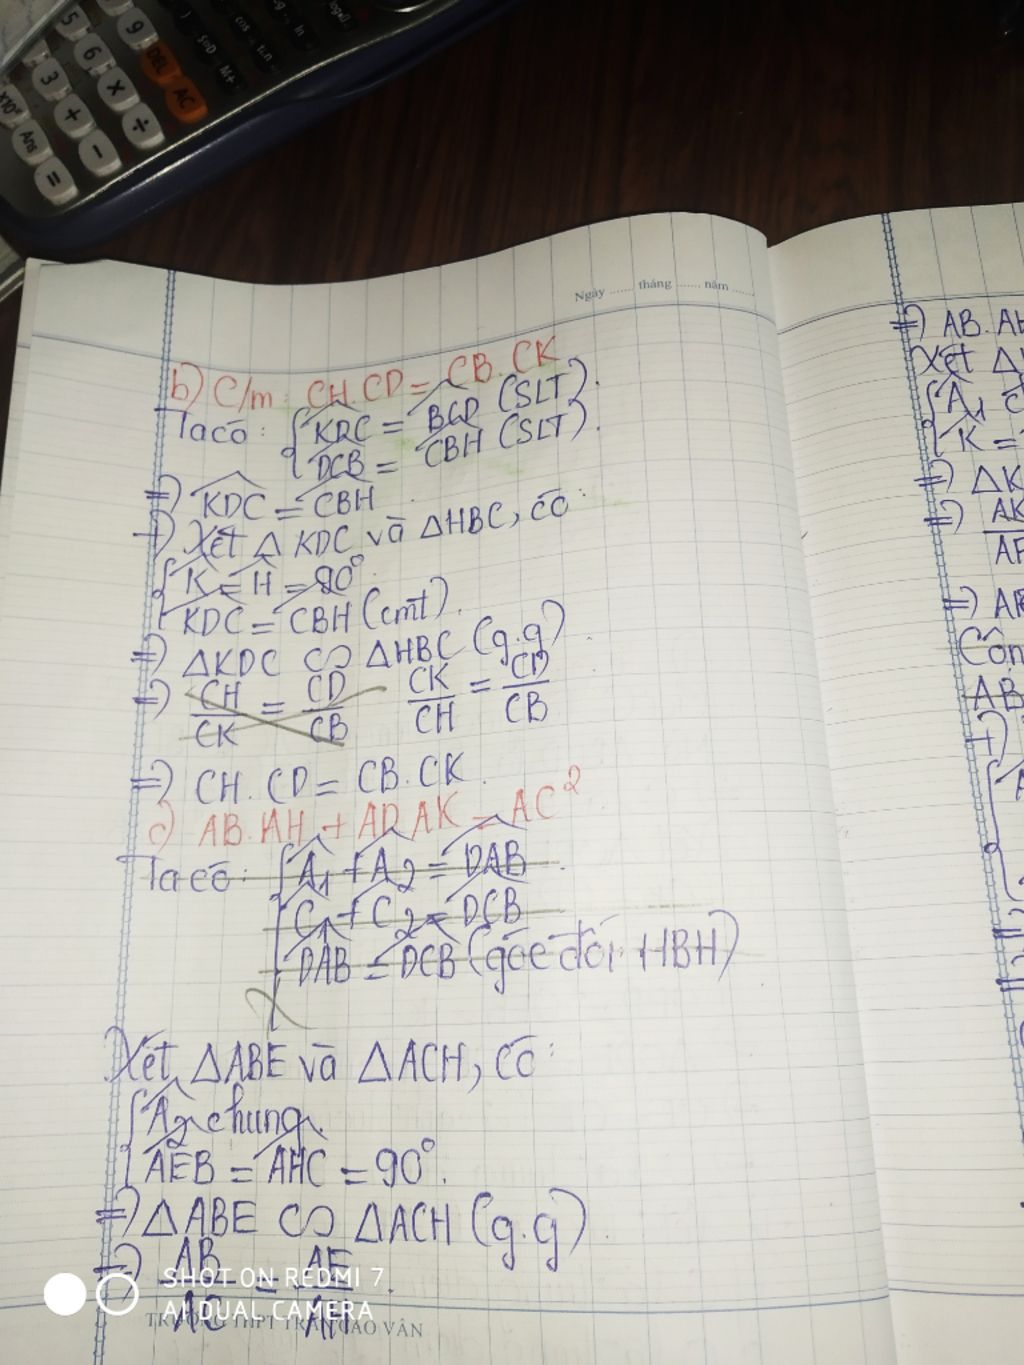 5
9
DEL
AC
6
3
×
÷
+
−
Ans
=
M+
cos
Ngày ...... tháng ...... năm ......
b) C/m: CH.CD = CB.CK
Ta có: { KDC = BCD (SLT).
DCB = CBH (SLT).
=) KDC = CBH
+) Xét △ KDC và △HBC, có:
{ K = H = 90°
KDC = CBH (cmt).
=) △KDC ∽ △HBC (g.g)
=) CH/CK = CD/CB CK/CH = CD/CB
=) CH.CD = CB.CK.
c) AB.AH + AD.AK = AC²
Ta có: { A₁ + A₂ = DAB
C₁ + C₂ = DCB
DAB = DCB (góc đối HBH)
Xét △ABE và △ACH, có:
{ A₂ chung.
AEB = AHC = 90°.
=) △ABE ∽ △ACH (g.g)
=) AB/AC = AE/AH.
SHOT ON REDMI 7
AI DUAL CAMERA
TRƯỜNG THPT TRẦN CAO VÂN
=) AB.AH
Xét △
{ A₁
K =
=) △K
=) AK
=)
AB
+)